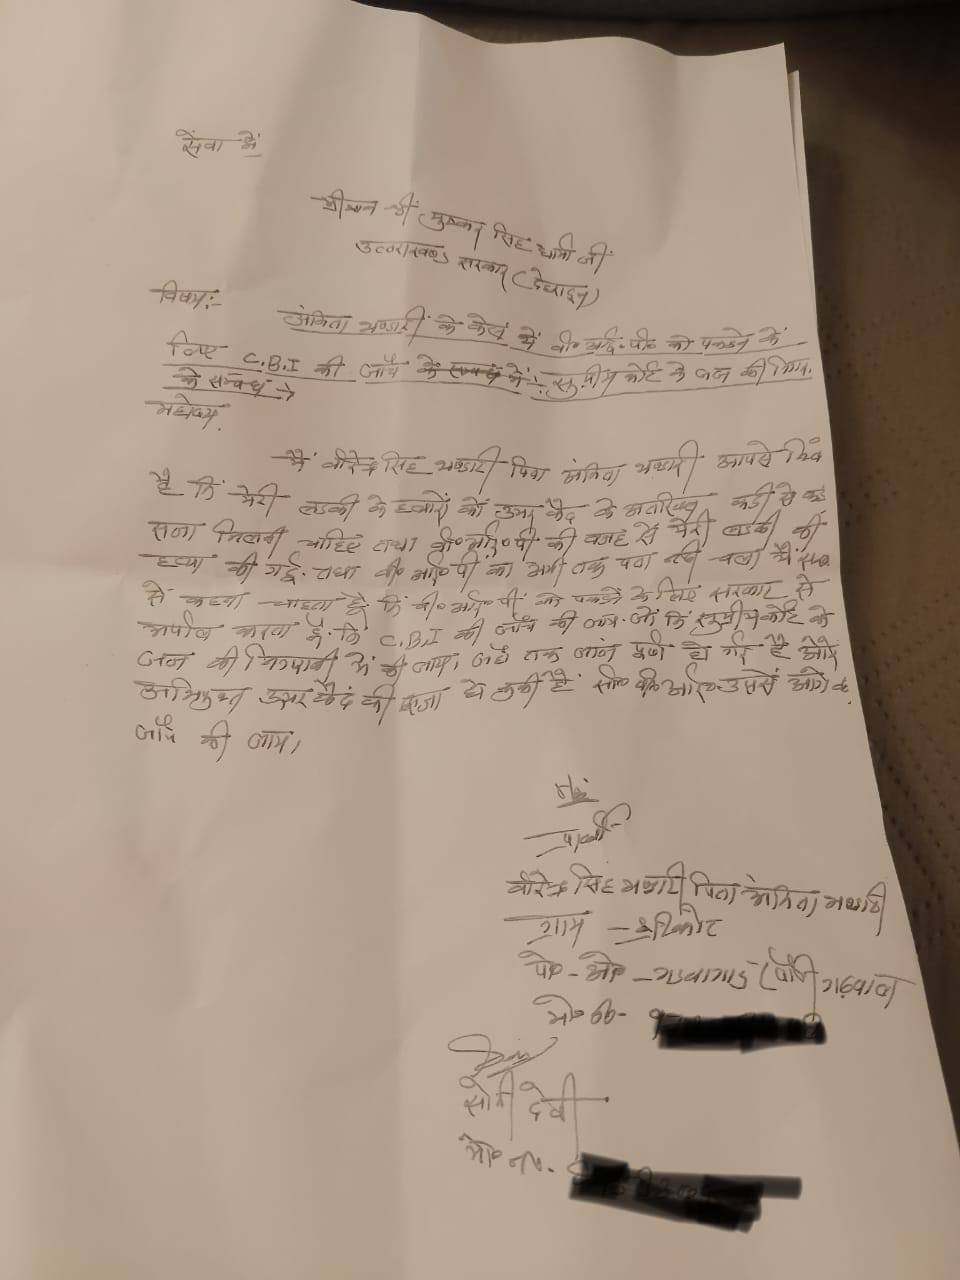 सेंवा में
श्रीमान श्री पुष्कर सिंह धामी जी
उत्तराखण्ड सरकार (देहरादून)
विषय:-
अंकिता भण्डारी के केस में वी॰ आई॰ पी॰ को पकडने के
लिए C.B.I की जाँच के सम्बंध में :- सुप्रीम कोर्ट के जज की निग.
के सम्बंध में →
महोदय.
मैं वीरेन्द्र सिंह भण्डारी पिता अंकिता भण्डारी आपसे
है कि मेरी लडकी के हत्यारों को उम्र कैद के अतरिक्त कडी से कडी
सजा मिलनी चाहिए तथा वी॰ आई॰ पी की वजह से मेरी लडकी की
हत्या की गई. तथा वी॰ आई॰ पी का अभी तक पता नही चला मैं
से कहना चाहता हूँ कि वी॰ आई॰ पी॰ को पकडने के लिए सरकार से
अपील करता हूँ. कि C.B.I की जाँच की जाय. जो कि सुप्रीम कोर्ट के
जज की निगरानी में की जाय। जहाँ तक जांच पूर्ण हो गई है और
अभियुक्त उम्र कैद की सजा दे चुकी है उससे आगे की
जाँच की जाय।
प्रार्थी
वीरेन्द्र सिंह भण्डारी पिता अंकिता भण्डारी
ग्राम - श्रीकोट
पो॰ - ओ॰ - (पौडी गढवाल
मो॰ न॰ - 9
सोनी देवी
मो॰ न॰.